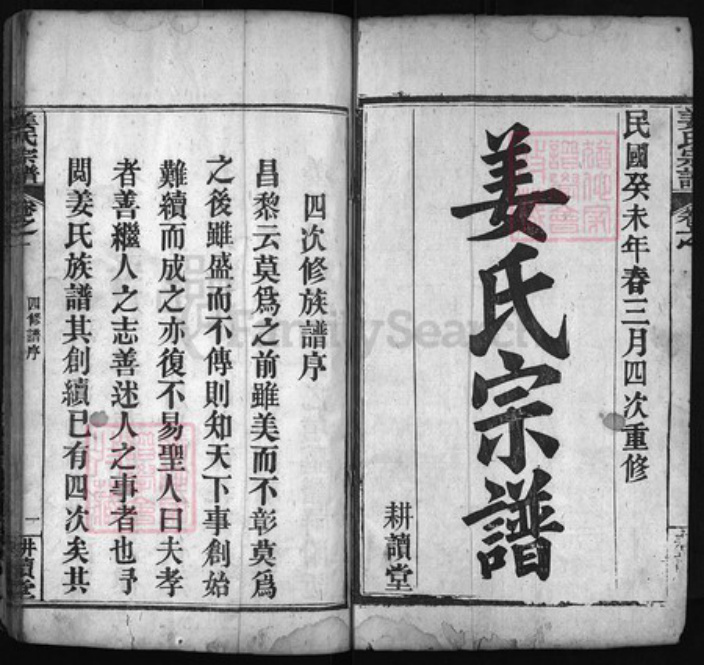 姜氏宗譜
民國癸未年春三月四次重修
姜氏宗譜
耕讀堂
四次修族譜序
昌黎云莫爲之前雖美而不彰莫爲
之後雖盛而不傳則知天下事創始
難續而成之亦復不易聖人曰夫孝
者善繼人之志善述人之事者也予
閱姜氏族譜其創續已有四次矣其
姜氏宗譜
卷之一
四修譜序
一
耕讀堂
FamilySearch